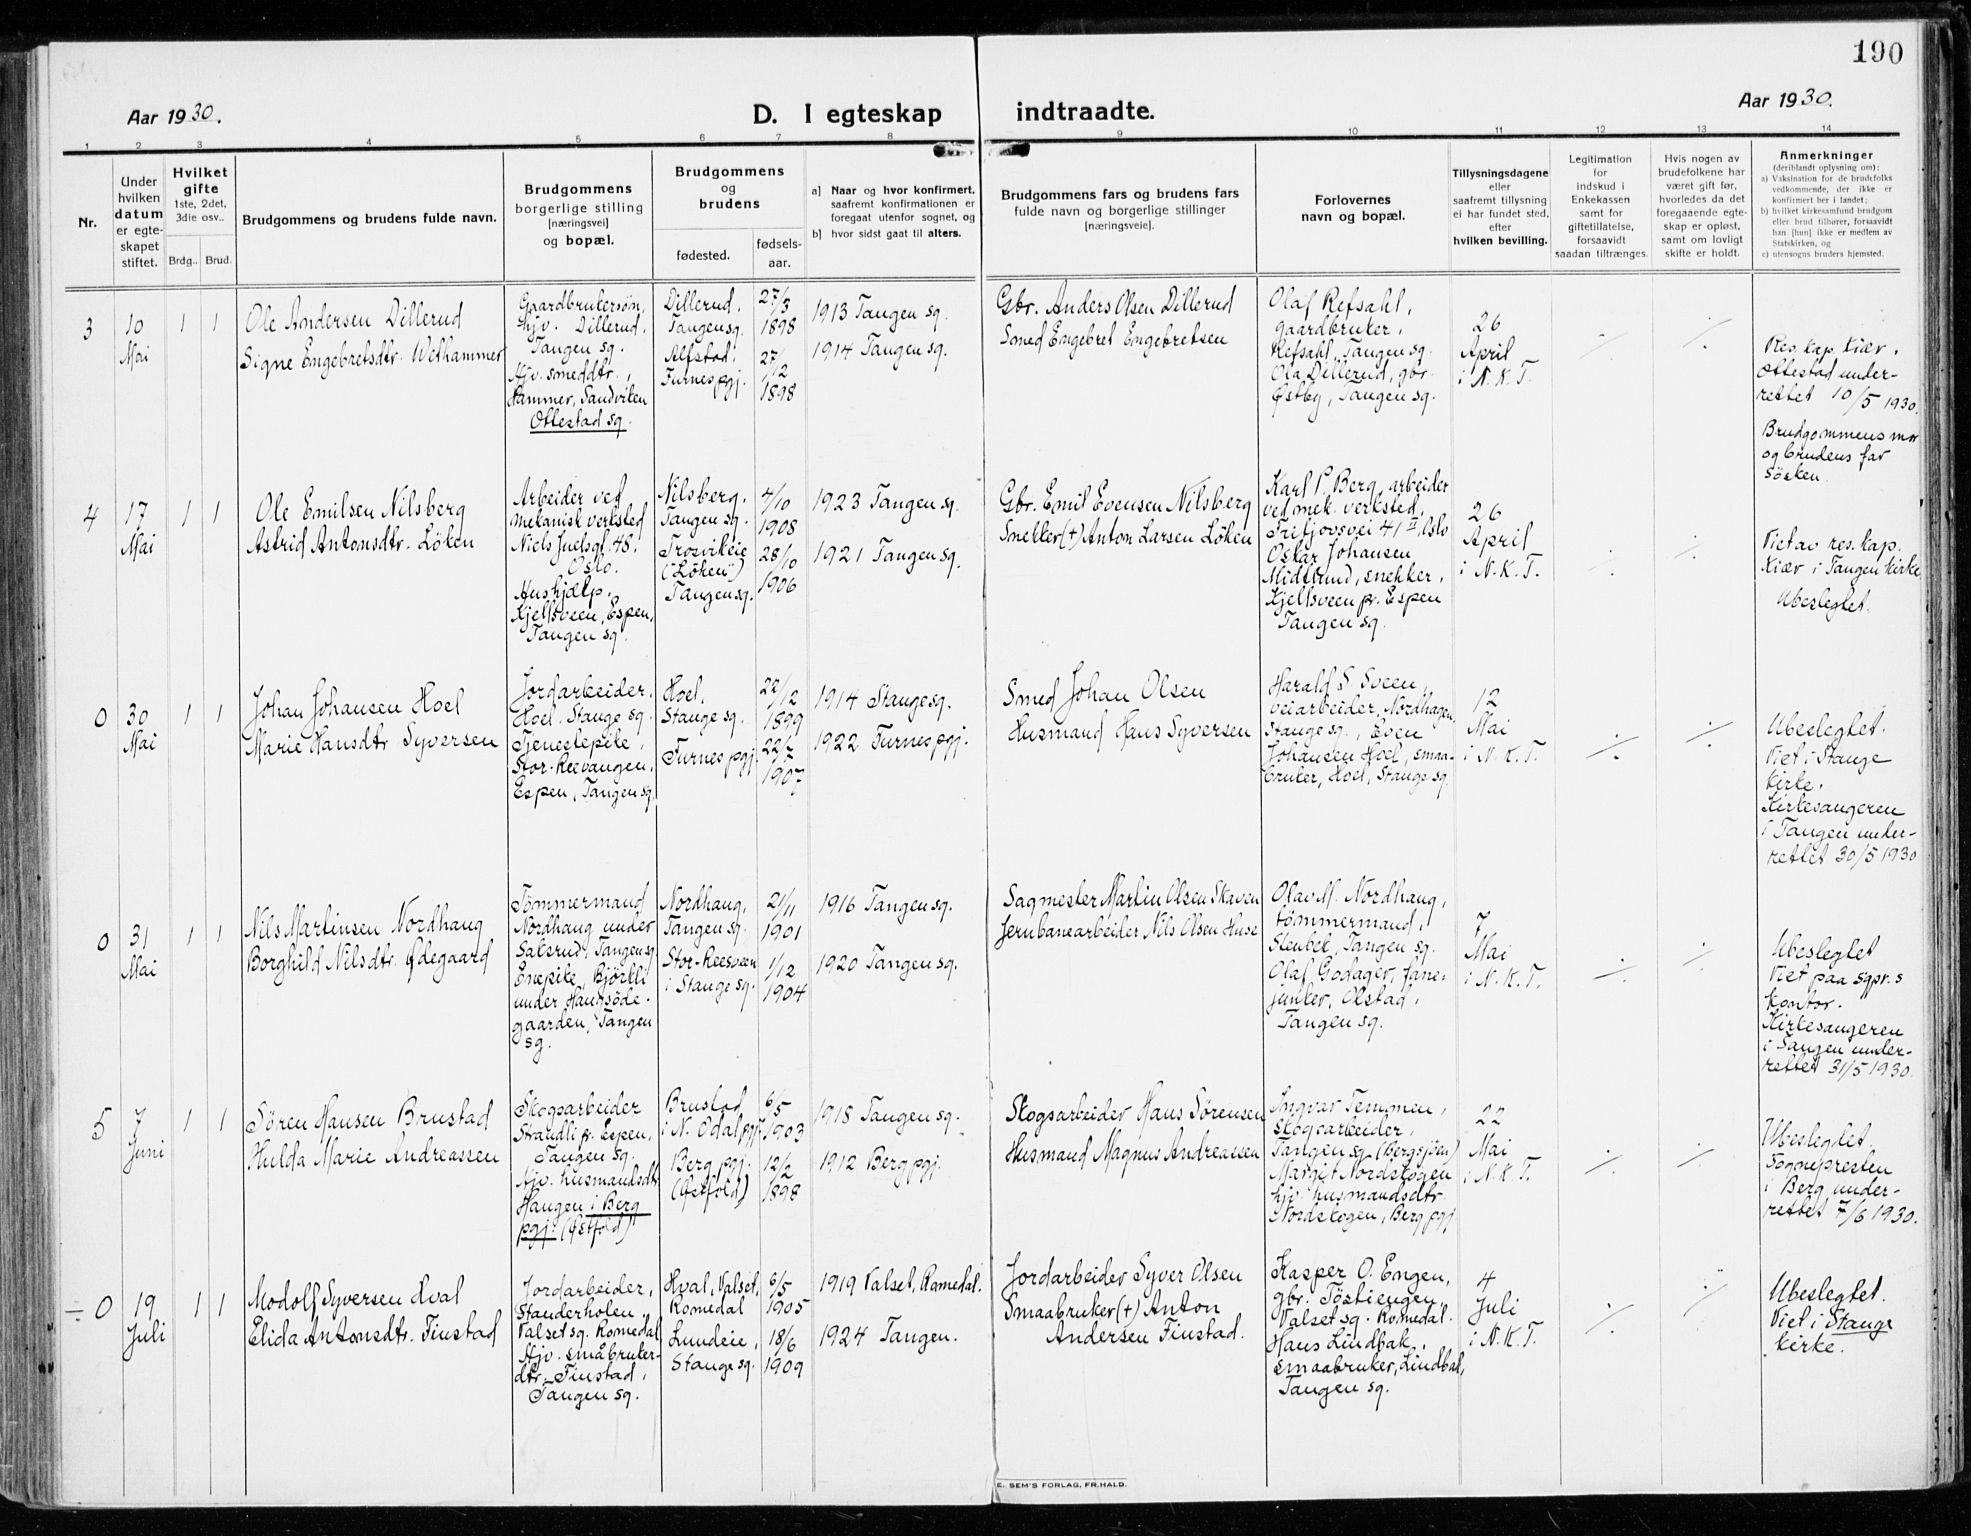 190
Aar 1930.
D. I egteskap indtraadte.
Aar 1930.
1 2 3 4 5 6 7 8 9 10 11 12 13 14
Nr.
Under
hvilken
datum
er egte-
skapet
stiftet.
Hvilket
gifte
1ste, 2det,
3die osv..
Brdg.. Brud.
Brudgommens og brudens fulde navn.
Brudgommens
borgerlige stilling
[næringsvei]
og bopæl.
Brudgommens
og
brudens
fødested.
fødsels-
aar.
a] Naar og hvor konfirmert,
saafremt konfirmationen er
foregaat utenfor sognet, og
b] hvor sidst gaat til alters.
Brudgommens fars og brudens fars
fulde navn og borgerlige stillinger
[næringsveie].
Forlovernes
navn og bopæl.
Tillysningsdagene
eller
saafremt tillysning
ei har fundet sted,
efter
hvilken bevilling.
Legitimation
for
indskud i
Enkekassen
samt for
giftetillatelse,
forsaavidt
saadan tiltrænges.
Hvis nogen av
brudefolkene har
været gift før,
hvorledes da det
foregaaende egte-
skap er opløst,
samt om lovligt
skifte er holdt.
Anmerkninger
(deriblandt oplysning om):
a) Vaksination for de brudefolks
vedkommende, der ikke er
konfirmert her i landet;
b) hvilket kirkesamfund brudgom
eller brud tilhører, forsaavidt
han [hun] ikke er medlem av
Statskirken, og
c) utensogns bruders hjemsted.
3
10
Mai
1 1
Ole Andersen Dillerud
Signe Engebretsdtr. Wethammer
Gaardbrukersøn,
hjv. Dillerud,
Tangen sq.
Hjv. smeddtr.,
Hammer, Sandviken
Ottestad sq.
Dillerud,
Tangen sq.
Alfstad,
Furnes pgj.
27/3
1898
27/12
1898
1913 Tangen sq.
1914 Tangen sq.
Gbr. Anders Olsen Dillerud
Smed Engebret Engebretsen
Olaf Refsahl,
gaardbruker,
Refsahl, Tangen sq.
Ola Dillerud, gbr.
Østby, Tangen sq.
26
April
i N.K.T.
÷ ÷
Res. kap. Kiær,
Ottestad under-
rettet 10/5 1930.
Brudgommens mor
og brudens far
søsken.
4
17
Mai
1 1
Ole Emilsen Nilsberg
Astrid Antonsdtr. Löken
Arbeider ved
mekanisk verksted
Niels Juelsgt. 48,
Oslo.
Hushjælp,
Kjellsveen, Espen,
Tangen sq.
Nilsberg,
Tangen sq.
Trosvikeie
("Löken")
Tangen sq.
4/10
1908
28/10
1906
1923 Tangen sq.
1921 Tangen sq.
Gbr. Emil Evensen Nilsberg
Snekker (+) Anton Larsen Löken
Karl P. Berg, arbeider
ved mek. verksted,
Fritjovsvei 41 II, Oslo
Oskar Johansen
Midtlund, snekker,
Kjellsveen pr. Espen
Tangen sq.
26
April
i N.K.T.
÷ ÷
Viet av res. kap.
Kiær i Tangen kirke
Ubeslegtet.
0
30
Mai
1 1
Johan Johansen Hoel
Marie Hansdtr Syversen
Jordarbeider,
Hoel, Stange sq.
Tjenestepike,
Stor-Reevangen,
Espen, Tangen sq.
Hoel,
Stange sq.
Furnes pgj.
22/12
1899
22/7
1907
1914 Stange sq.
1922 Furnes pgj.
Smed Johan Olsen
Husmand Hans Syversen
Harald S. Sveen,
veiarbeider, Nordhagen,
Stange sq., Even
Johansen Hoel, smaa-
bruker, Hoel, Stange sq.
12
Mai
i N.K.T.
÷ ÷
Ubeslegtet.
Viet i Stange
kirke.
Kirkesangeren
i Tangen under-
rettet 30/5 1930
0
31
Mai
1 1
Nils Martinsen Nordhaug
Borghild Nilsdtr. Ødegaard
Tömmermand
Nordhaug under
Sakerud, Tangen sq.
Enepike, Björkli
under Haugsöde-
gaarden, Tangen
sq.
Nordhaug,
Tangen sq.
Stor-Reesveen
i Stange sq.
21/11
1901
1/12
1904
1916 Tangen sq.
1920 Tangen sq.
Sagmester Martin Olsen Skaven
Jernbanearbeider Nils Olsen Huse
Olav M. Nordhaug,
tömmermand,
Stenbek, Tangen sq.
Olaf Godager, fane-
junker, Olstad,
Tangen sq.
7
Mai
i N.K.T.
÷ ÷
Ubeslegtet
Viet paa sgpr.s
kontor.
Kirkesangeren
i Tangen under-
rettet 31/5 1930.
5
7
Juni
1 1
Sören Hansen Brustad
Hulda Marie Andreassen
Skogsarbeider
Strandli pr. Espen,
Tangen sq.
Hjv. husmandsdtr.
Haugen i Berg
pgj. (Østfold)
Brustad
i N. Odal pgj.
Berg pgj.
(Østfold)
6/5
1903
12/2
1898
1918 Tangen sq.
1912 Berg pgj.
Skogsarbeider Hans Sörensen
Husmand Magnus Andreassen
Ingvar Temmen,
skogsarbeider,
Tangen sq. (Bergsjöen)
Margit Nordskogen
hjv. husmandsdtr.
Nordskogen, Berg pgj
22
Mai
i N.K.T.
÷ ÷
Ubeslegtet.
Sognepresten
i Berg under-
rettet 7/6 1930.
÷ 0
19
Juli
1 1
Modolf Syversen Hval
Elida Antonsdtr. Finstad
Jordarbeider,
Standerholen,
Valset sq. Romedal
Hjv. småbruker-
dtr. Finstad,
Tangen sq.
Hval, Valset,
Romedal
Lundeie,
Stange sq.
6/5
1905
18/6
1909
1919 Valset, Romedal.
1924 Tangen.
Jordarbeider Syver Olsen
Smaabruker (+) Anton
Andersen Finstad.
Kasper O. Engen,
gbr. Töstiengen,
Valset sq. Romedal.
Hans Lindbak,
smaabruker, Lindbak,
Tangen sq.
4
Juli
i N.K.T.
÷ ÷
Ubeslegtet.
Viet i Stange
kirke.
E. SEM'S FORLAG, FR.HALD.